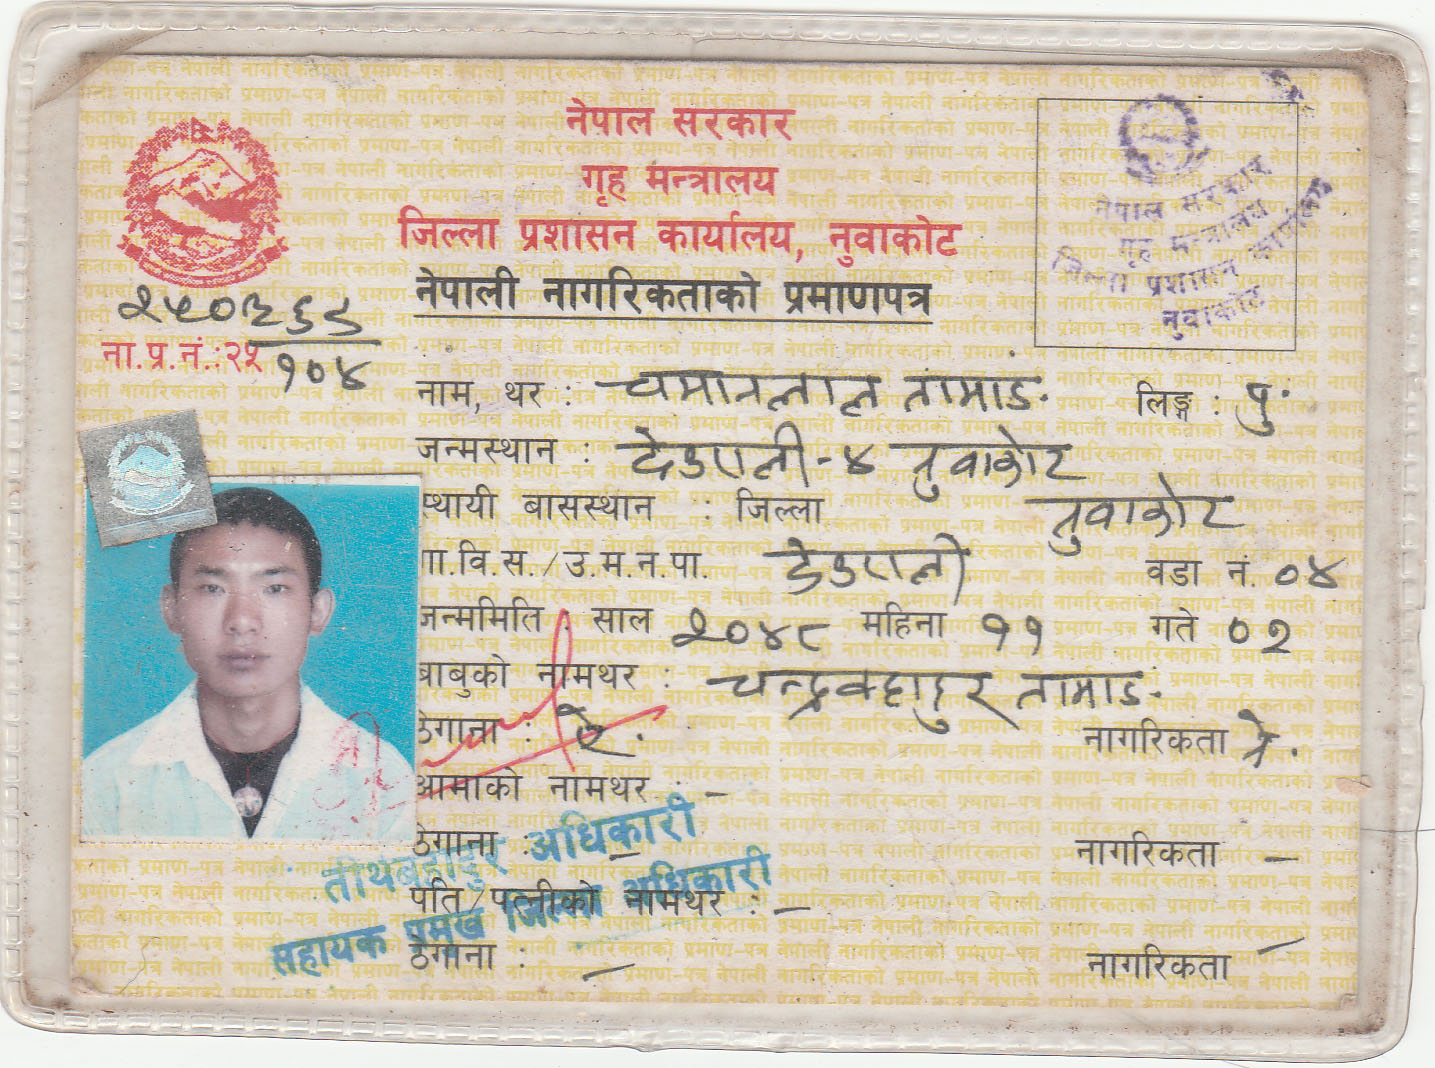 नेपाल सरकार
गृह मन्त्रालय
जिल्ला प्रशासन कार्यालय, नुवाकोट
नेपाली नागरिकताको प्रमाणपत्र
नेपाल सरकार
गृह मन्त्रालय
जिल्ला प्रशासन कार्यालय
नुवाकोट
ना.प्र.नं.:२५
१०४
नाम, थर : चमानलाल तामाङ लिङ्ग : पु.
जन्मस्थान : देउराली-४ नुवाकोट
स्थायी बासस्थान : जिल्ला नुवाकोट
गा.वि.स./उ.म.न.पा. देउराली वडा नं. ०४
जन्ममिति : साल २०४८ महिना ११ गते ०२
बाबुको नामथर : चन्द्रबहादुर तामाङ
ठेगाना : ऐ. नागरिकता ने.
आमाको नामथर : -
ठेगाना : - नागरिकता -
पति/पत्नीको नामथर : -
ठेगाना : - नागरिकता -
तीर्थबहादुर अधिकारी
सहायक प्रमुख जिल्ला अधिकारी